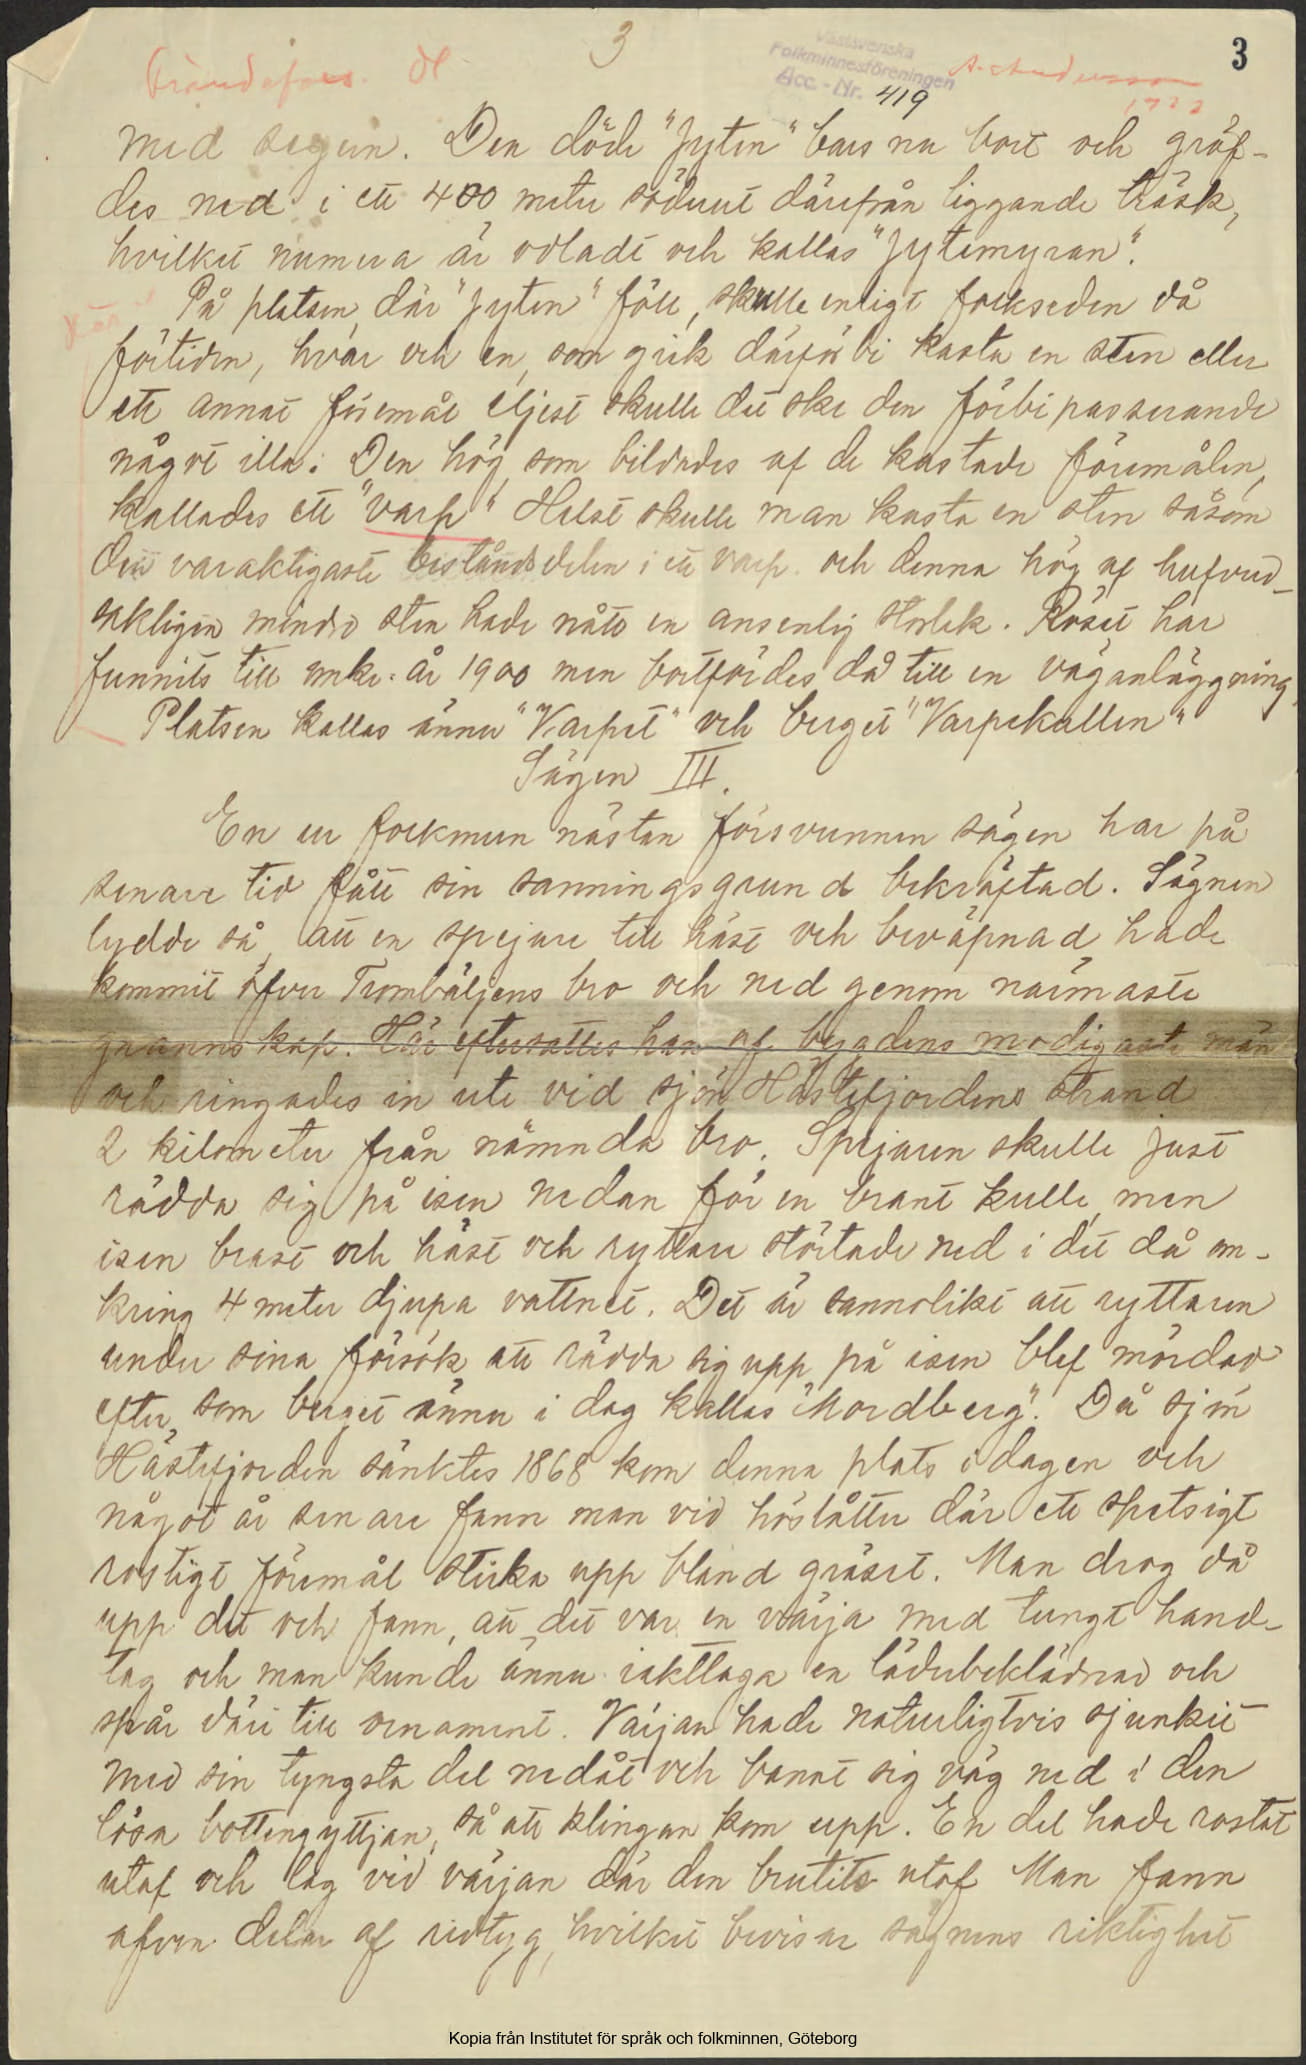 3
3
Frändefors. Dl
Västsvenska
Folkminnesföreningen
Acc.-Nr. 419
A. Andersson
med segern. Den döde "Jyten" bars nu bort och gräf-
des ned i ett 400 meter söderut därifrån liggande träsk,
hvilket numera är odladt och kallas "Jytemyran".
På platsen, där "Jyten" föll, skulle enligt folkseden då
förtiden, hvar och en, som gick därförbi kasta en sten eller
ett annat föremål eljest skulle det ske den förbipasserande
något illa. Den hög, som bildades af de kastade föremålen,
kallades ett "varp" Helst skulle man kasta en sten såsom
den varaktigaste beståndsdelen i ett varp. och denna hög af hufvud-
sakligen mindre sten hade nått en ansenlig storlek. Röset har
funnits till omkr. år 1900 men bortfördes då till en väganläggning,
Platsen kallas ännu "Varpet" och berget "Varpekallen"
Sägen III.
En ur folkmun nästan försvunnen sägen har på
senare tid fått sin sanningsgrund bekräftad. Sägnen
lydde så, att en spejare till häst och beväpnad hade
kommit öfver Trombäljens bro och ned genom närmaste
grannskap. Här eftersattes han af bygdens modigaste män
och ringades in ute vid sjön Hästefjordens strand
2 kilometer från nämnda bro. Spejaren skulle just
rädda sig på isen nedan för en brant kulle, men
isen brast och häst och ryttare störtade ned i det då om-
kring 4 meter djupa vattnet. Det är sannolikt att ryttaren
under sina försök att rädda sig upp på isen blef mördad
efter som berget ännu i dag kallas "Mordberg". Då sjön
Hästefjorden sänktes 1868 kom denna plats i dagen och
något år senare fann man vid höslåtter där ett spetsigt
rostigt föremål sticka upp bland gräset. Man drog då
upp det och fann, att det var en värja med tungt hand-
tag och man kunde ännu iakttaga en läderbeklädnad och
spår däri till ornament. Värjan hade naturligtvis sjunkit
med sin tyngsta del nedåt och banat sig väg ned i den
lösa bottengyttjan, så att klingan kom upp. En del hade rostat
utaf och låg vid värjan där den brutits utaf Man fann
afven delar af ridtyg, hvilket bevisar sägnens riktighet
Kopia från Institutet för språk och folkminnen, Göteborg